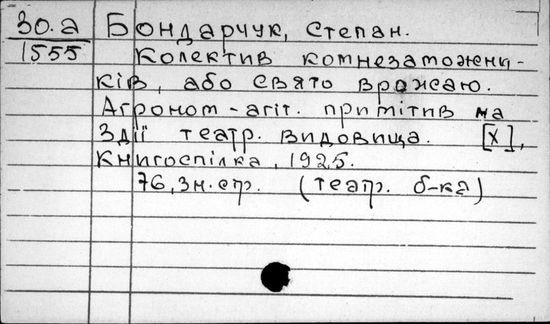 Зо.а Бондарчук, Степан.
1555 Колектив комнезаможни-
ків, або свято врожаю.
Агроном-агіт. примітив на
3 дії театр. видовища. [Х],
Книгоспілка, 1925.
76, 3н.стр. (театр. б-ка)